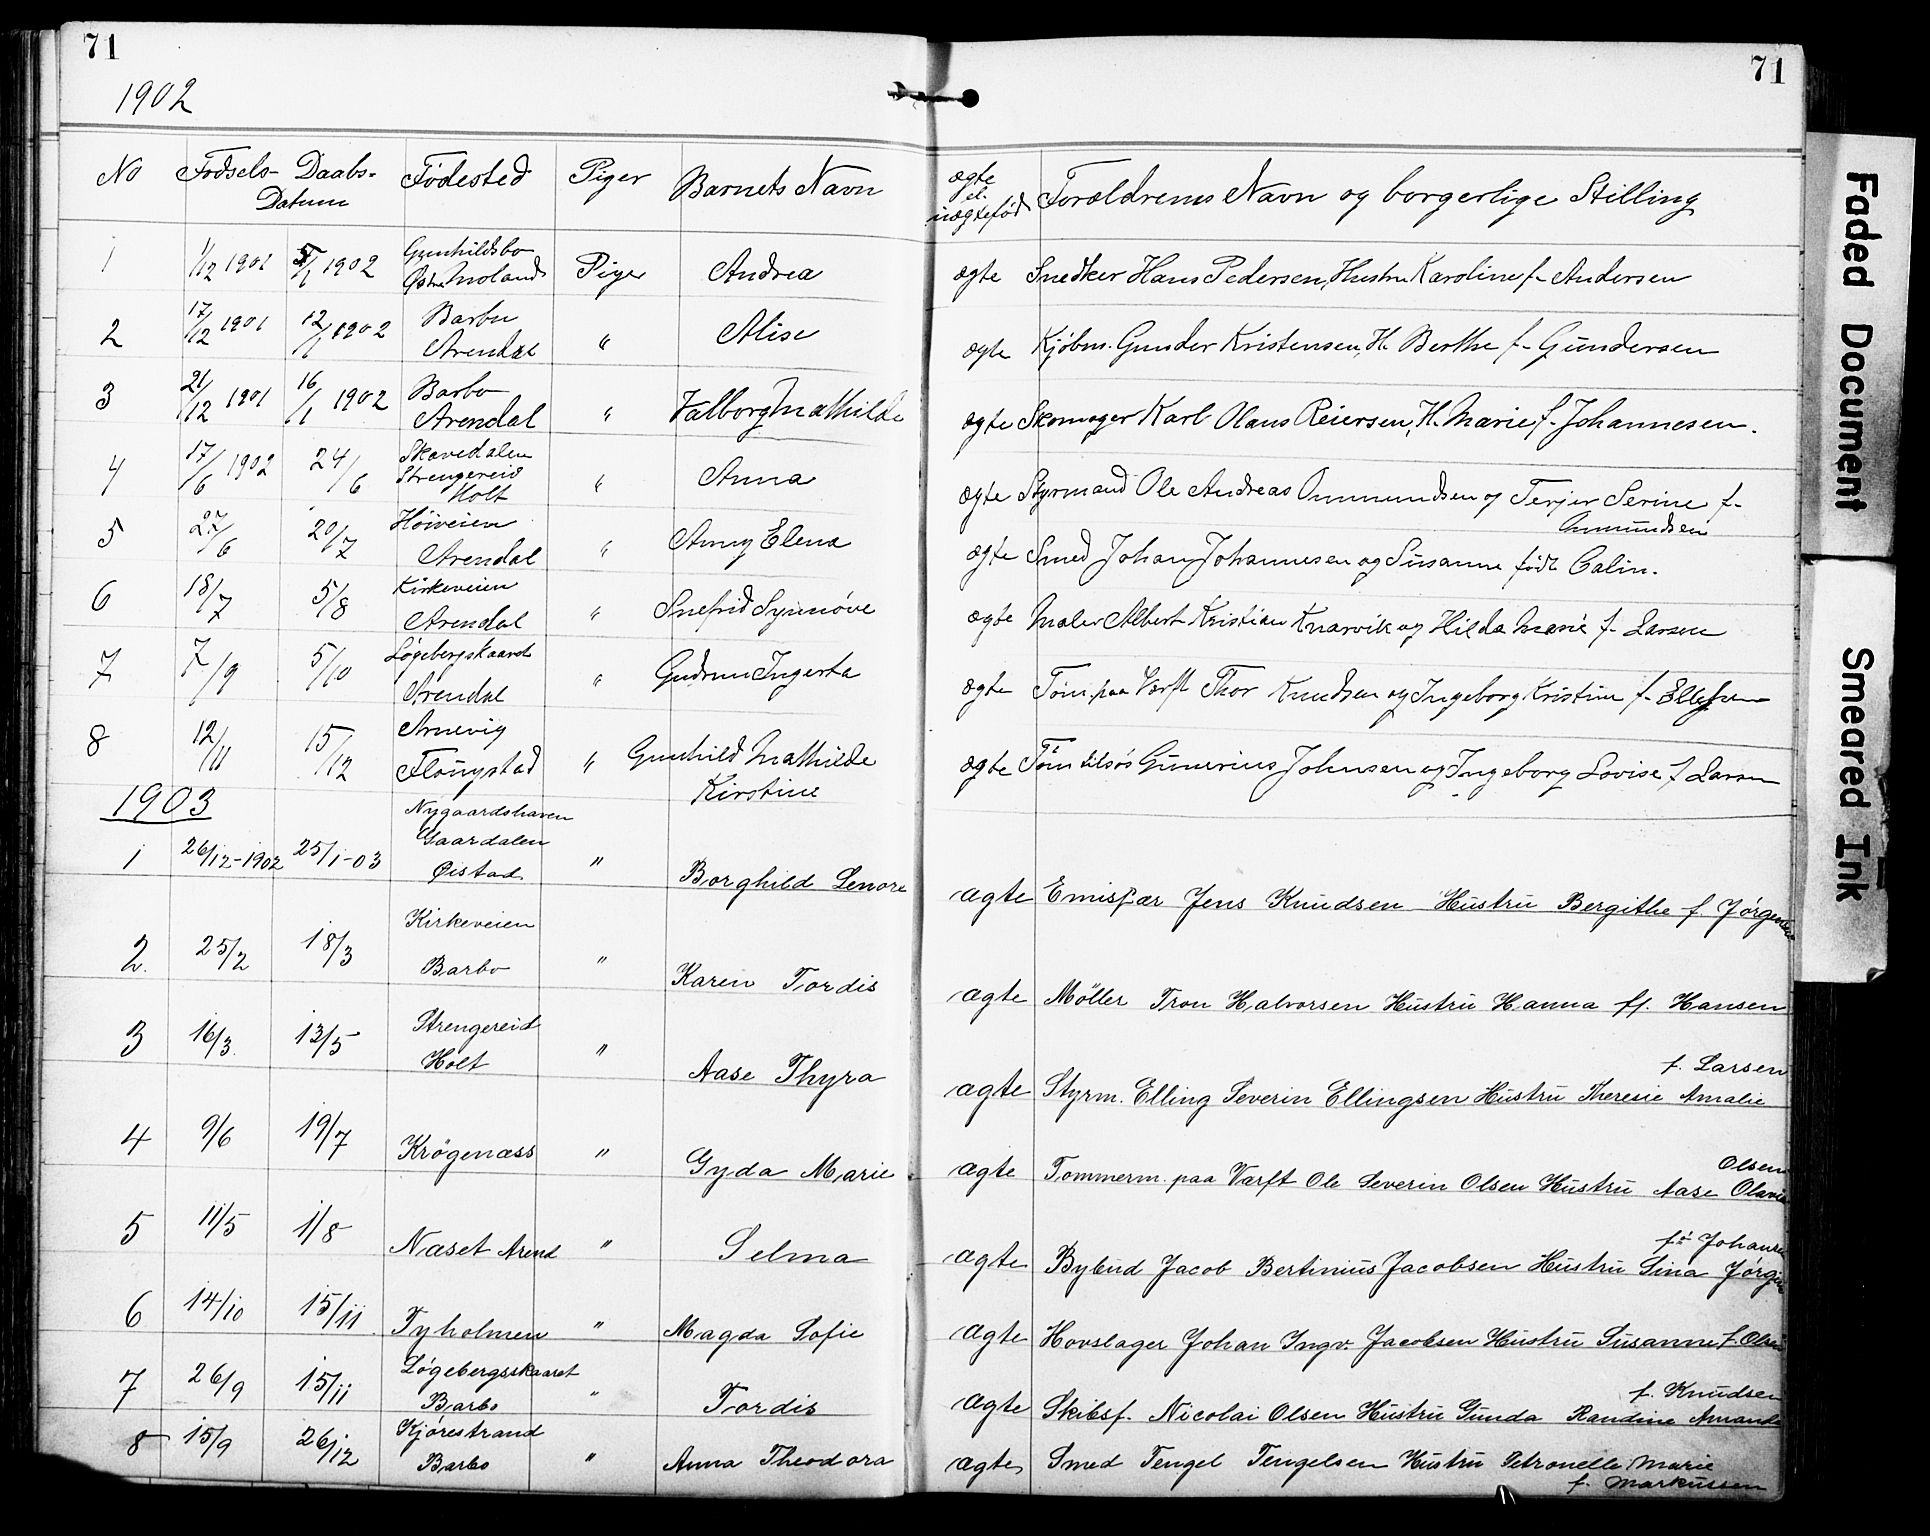 71
71
1902
No Fødsels- Daabs- Datum Fødested Piger Barnets Navn ægte el. uægtefød Forældrenes Navn og borgerlige Stilling
1 1/12 1901 5/1 1902 Gunhildsbo Østre Moland Piger Andrea ægte Snedker Hans Pedersen, Hustru Karoline f- Andersen
2 17/12 1901 12/1 1902 Barbu Arendal " Alise ægte Kjøbm. Gunder Kristensen, H. Berthe f- Gundersen
3 21/12 1901 16/1 1902 Barbo Arendal " Valborg Mathilde ægte Skomager Karl Olaus Reiersen, H. Marie f- Johannesen.
4 17/6 1902 24/6 Skovedalen Strengereid Holt " Anna ægte Styrmand Ole Andreas Ommundsen og Terjer Serine f- Ommundsen
5 27/6 20/7 Høiveien Arendal " Anny Elena ægte Smed Johan Johannesen og Susanne født Calin.
6 18/7 5/8 Kirkeveien Arendal " Snefrid Synnøve ægte Maler Albert Kristian Knarvik og Hilda Marie f- Larsen
7 7/9 5/10 Løgebergskaard Arendal " Gudrun Ingerta ægte Tøm. paa Værft Thor Knudsen og Ingeborg Kristine f- Ellefsen
8 12/11 15/12 Arnevig Flougstad " Gunhild Mathilde Kirstine ægte Tøm tilsøs Gunerius Johnsen og Ingeborg Lovise f Larsen
1903
1 26/12-1902 25/1-03 Nygaardshaven Gaardalen Øistad " Borghild Lenore ægte Emisær Jens Knudsen Hustru Bergithe f Jørgensen
2. 25/2 18/3 Kirkeveien Barbo " Karen Tordis ægte Møller Tron Halvorsen Hustru Hanna ff. Hansen
3 16/3 13/5 Strengereid Holt " Aase Thyra ægte Styrm. Elling Severin Ellingsen Hustru Theresie Amalie f. Larsen
4 9/6 19/7 Krøgenæss " Gyda Marie ægte Tommerm. paa Værft Ole Severin Olsen Hustru Aase Olavia Olsen
5 11/5 1/8 Næset Arend " Selma ægte Bybud Jacob Bertinius Jacobsen Hustru Sina Jørgine f. Johansen
6 14/10 15/11 Tyholmen " Magda Sofie ægte Hovslager Johan Ingv. Jacobsen Hustru Susanne f. Olsen
7 26/9 15/11 Løgebergsskaaret Barbo " Tordis ægte Skibsf. Nicolai Olsen Hustru Gunda Randine Amanda f. Knudsen
8 15/9 26/12 Kjørestrand Barbo " Anna Theodora ægte Smed Tengel Tengelsen Hustru Petronelle Marie f. Markussen
Faded Document
Smeared Ink